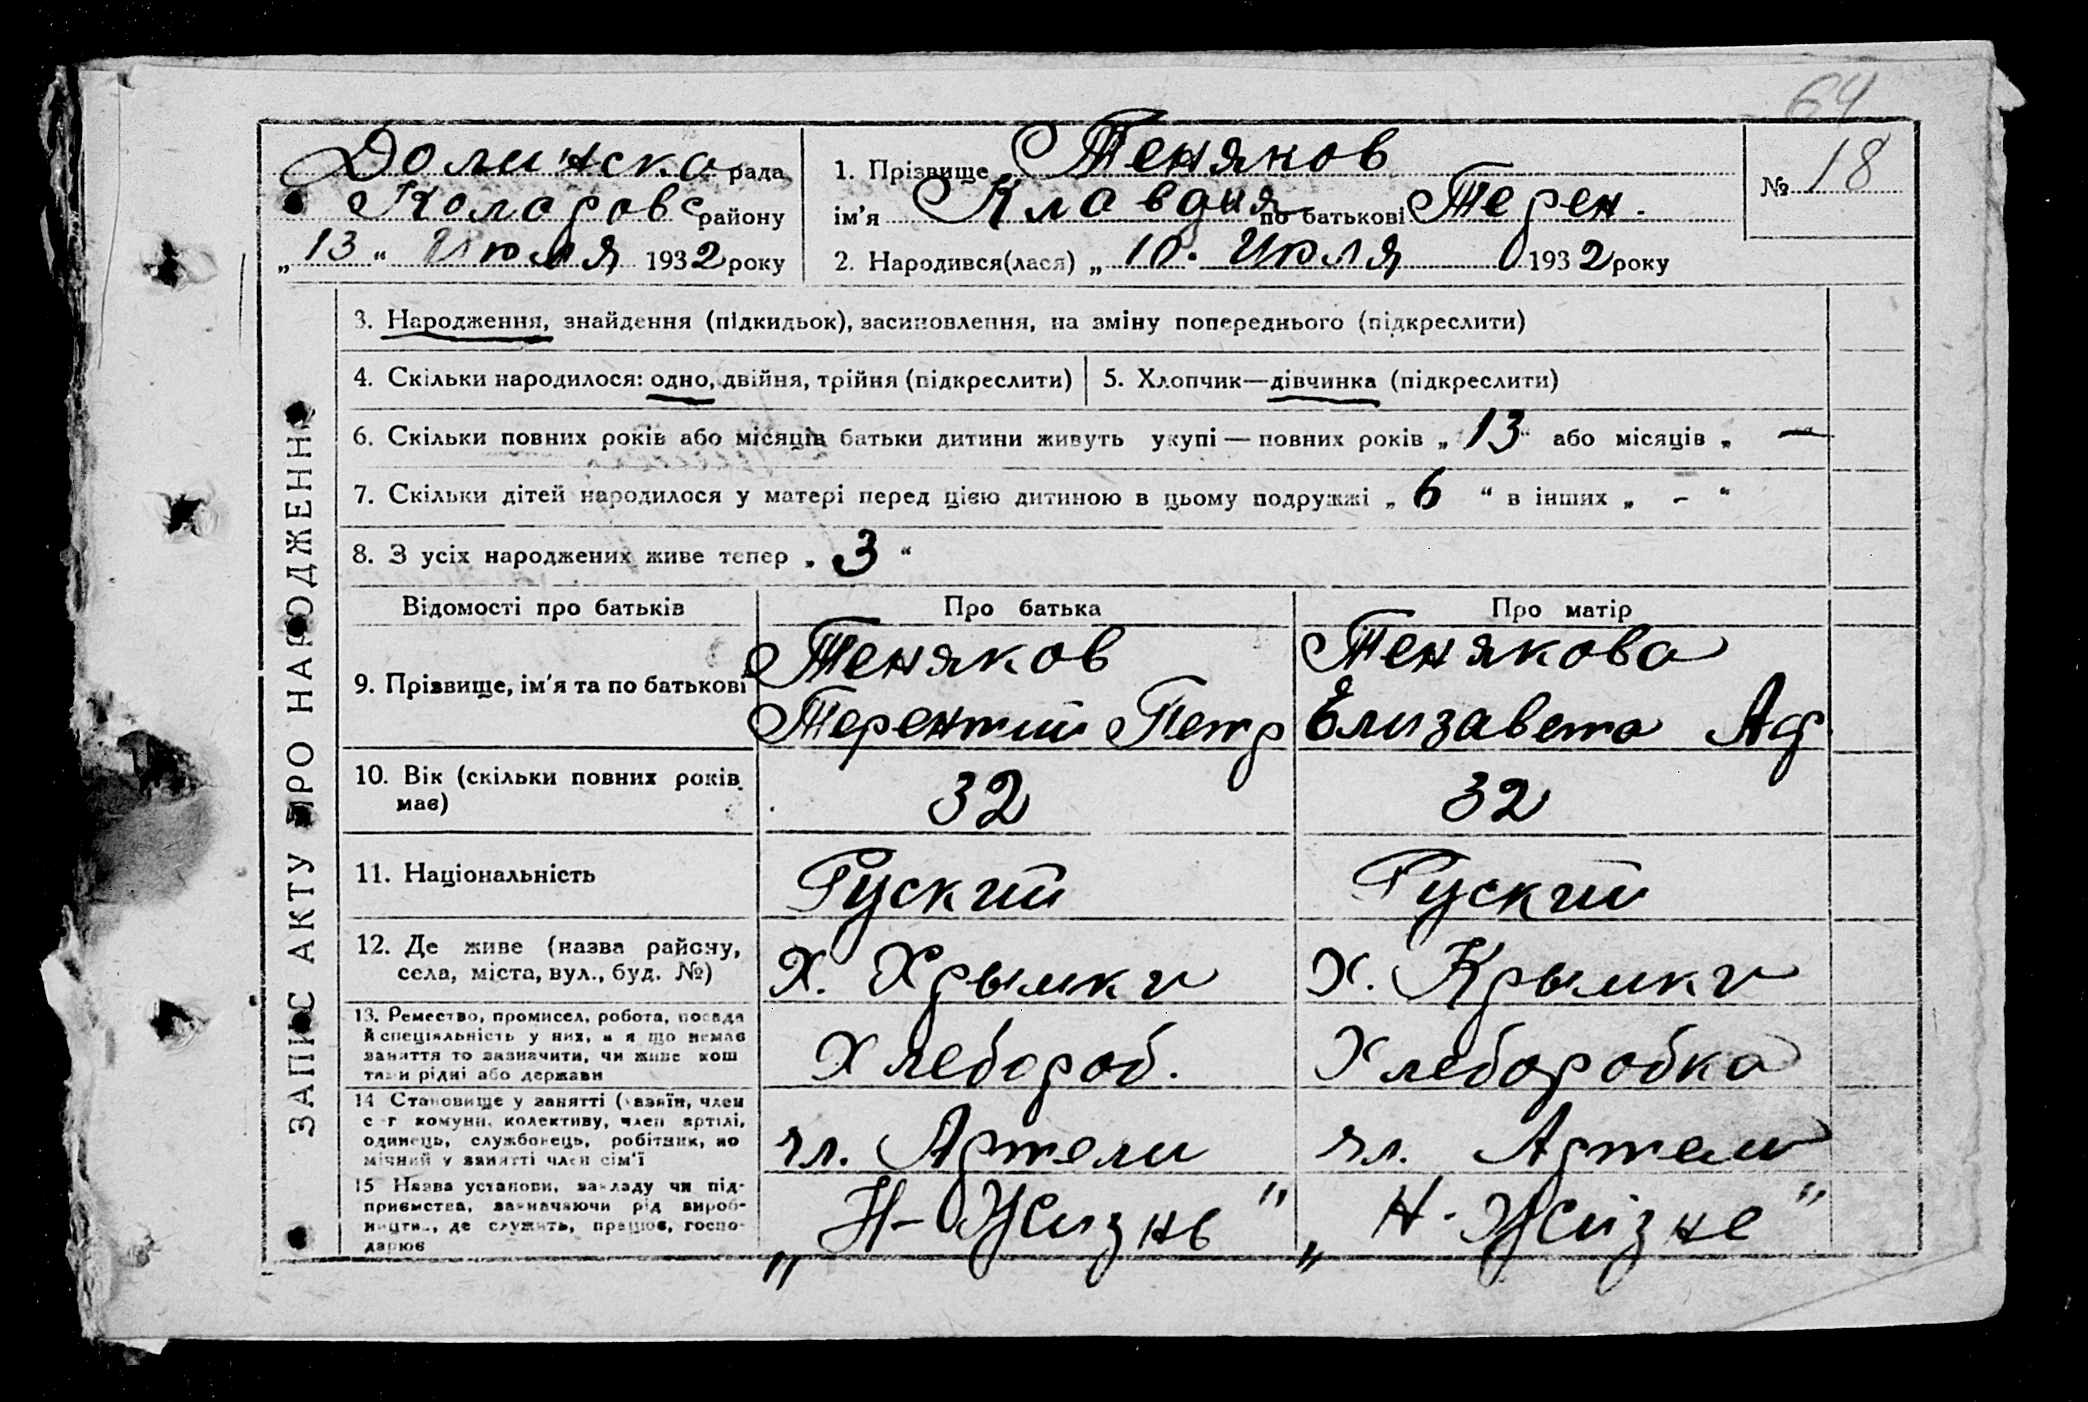 64
Долинска рада
Коларовс району
„13“ Июля 1932 року
1. Прізвище Теняков
ім'я Клавдия по батькові Терен.
2. Народився(лася) „10. Июля 1932 року
№ 18
ЗАПИС АКТУ ПРО НАРОДЖЕННЯ
3. Народження, знайдення (підкидьок), засиновлення, на зміну попереднього (підкреслити)
4. Скільки народилося: одно, двійня, трійня (підкреслити)
5. Хлопчик—дівчинка (підкреслити)
6. Скільки повних років або місяців батьки дитини живуть укупі — повних років „13“ або місяців „ —
7. Скільки дітей народилося у матері перед цією дитиною в цьому подружжі „6“ в інших „ - “
8. З усіх народжених живе тепер „3“
Відомості про батьків
Про батька
Про матір
9. Прізвище, ім'я та по батькові
Теняков
Терентий Петр
Тенякова
Елизавета Аф
10. Вік (скільки повних років
має)
32
32
11. Національність
Руский
Руский
12. Де живе (назва району,
села, міста, вул., буд. №)
Х. Крымки
Х. Крымки
13. Ремество, промисел, робота, посада
й спеціяльність у них, а я що немає
заняття то зазначити, чи живе кош
тами рідні або держави
Хлебороб.
Хлеборобка
14 Становище у занятті (хазяїн, член
с-г комуни, колективу, член артілі,
одинець, службовець, робітник, по
мічний у занятті член сім'ї
чл. Артели
чл. Артели
15 Назва установи, закладу чи під-
приємства, зазначаючи рід вироб-
ництв., де служить, працює, госпо-
дарює
„Н-Жизнь"
„Н-Жизнь"